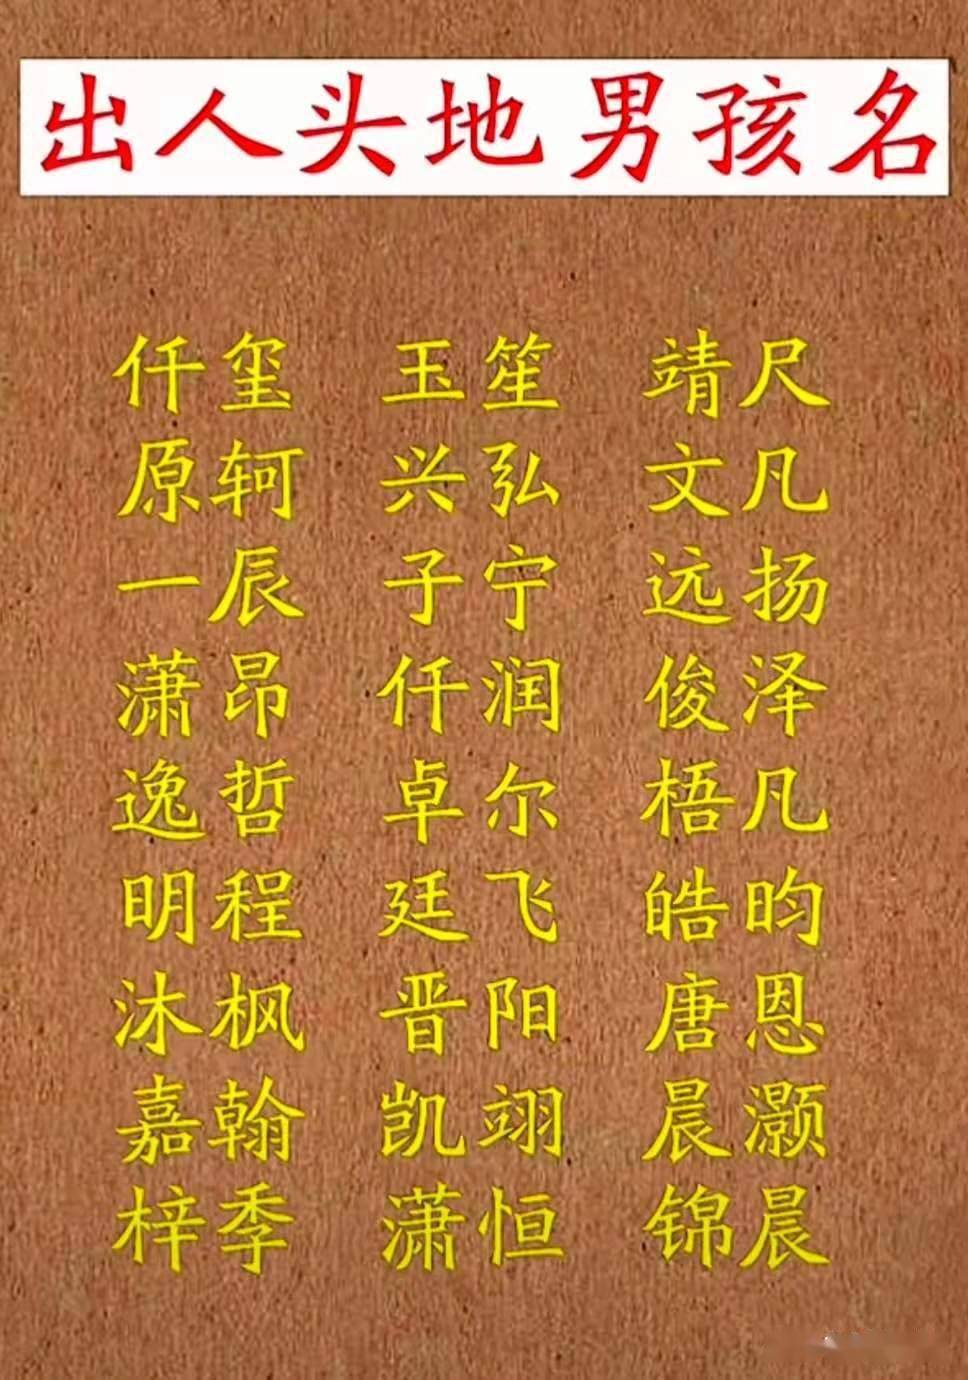 出人头地男孩名
仟玺 玉笙 靖尺
原轲 兴弘 文凡
一辰 子宁 远扬
潇昂 仟润 俊泽
逸哲 卓尔 梧凡
明程 廷飞 皓昀
沐枫 晋阳 唐恩
嘉翰 凯翊 晨灏
梓季 潇恒 锦晨